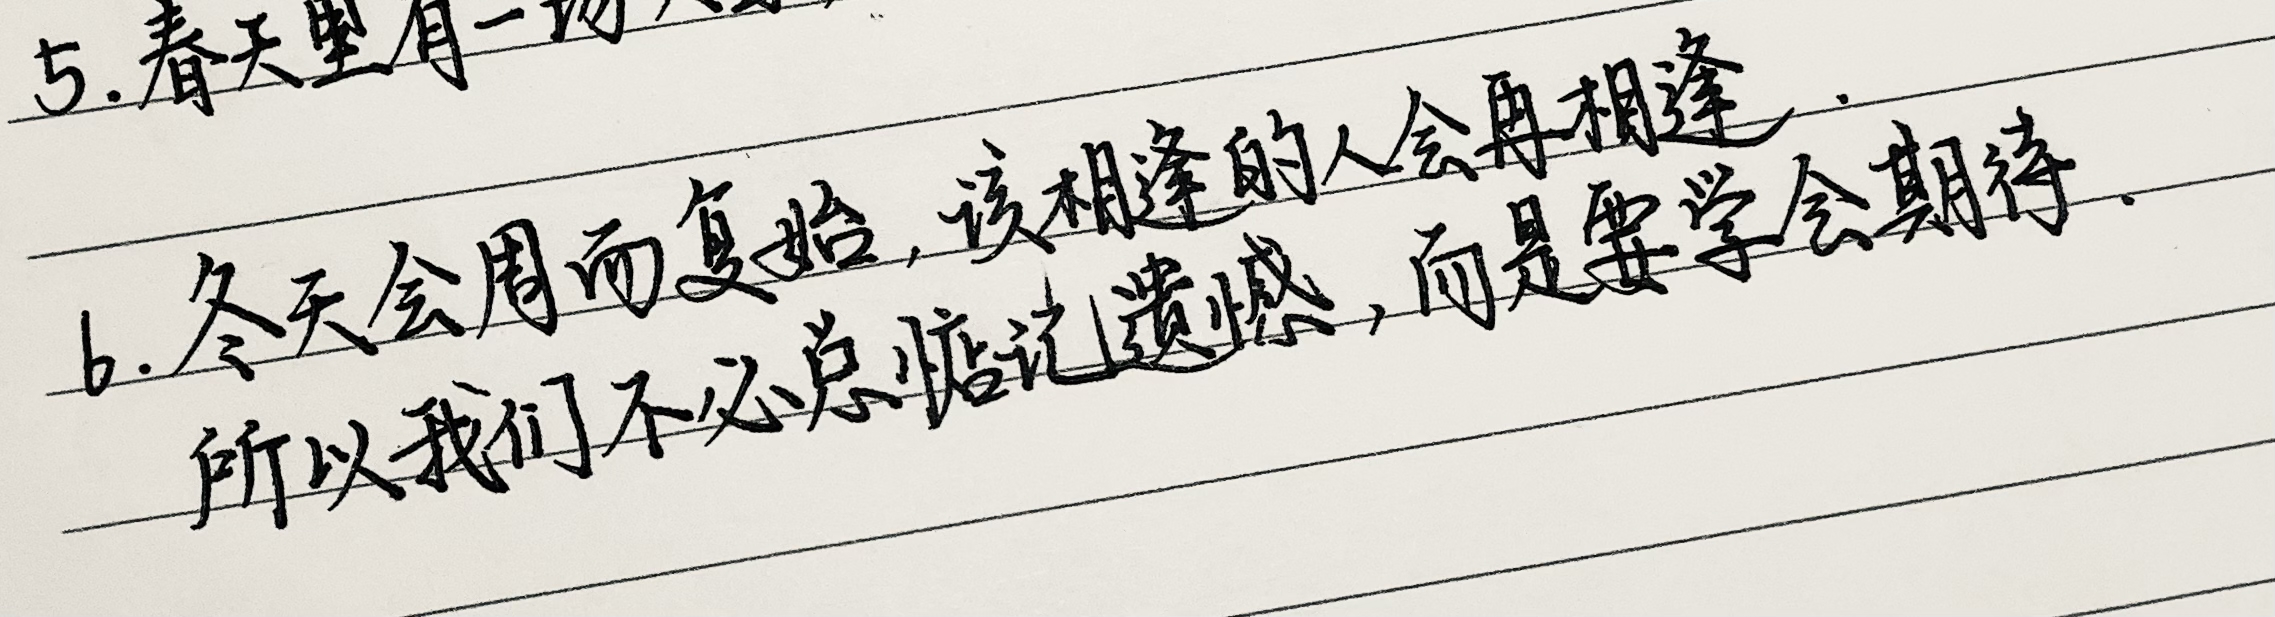 5.春天里有一场
6.冬天会周而复始,该相逢的人会再相逢.
所以我们不必总惦记遗憾,而是要学会期待.